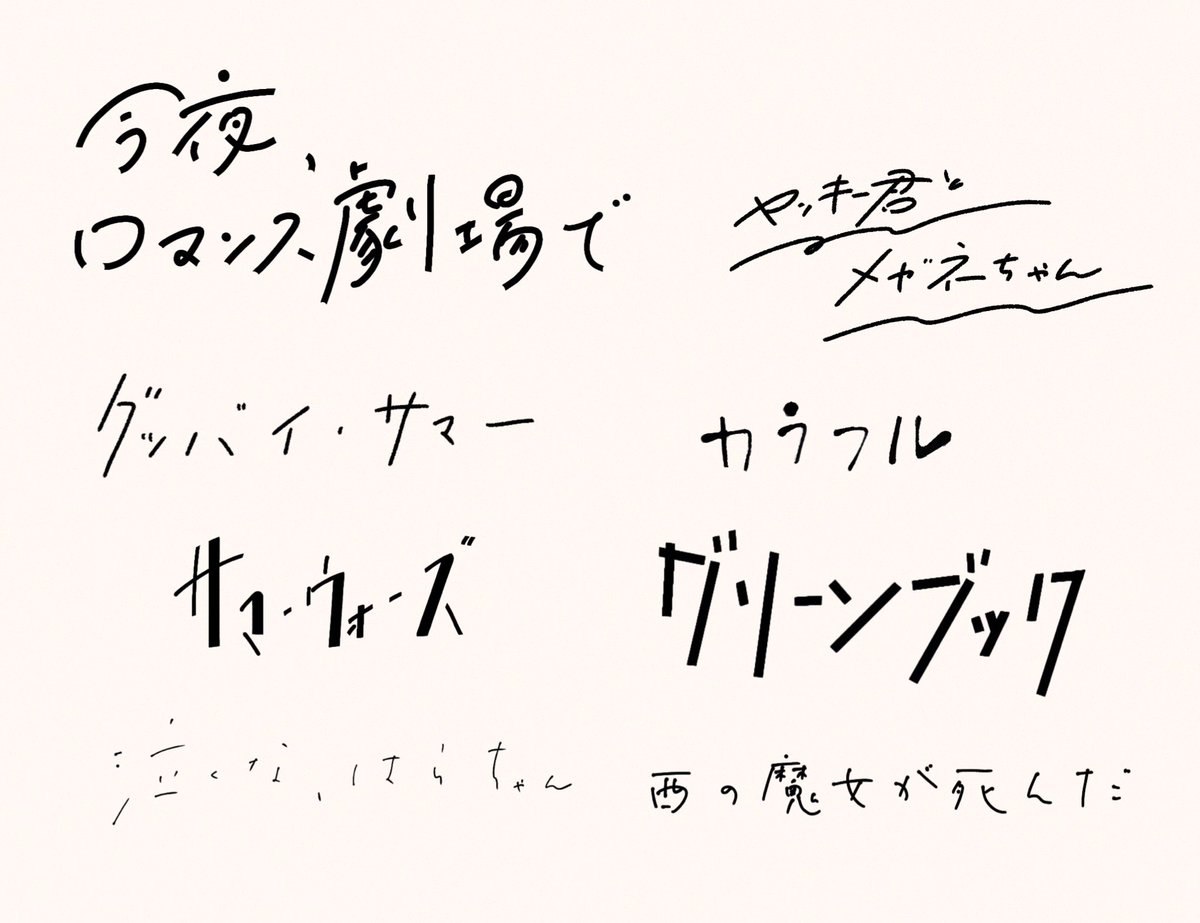 今夜、
ロマンス劇場で
ヤッキー君と
メガネちゃん
グッバイ・サマー
カラフル
サマーウォーズ
グリーンブック
泣くな、はらちゃん
西の魔女が死んだ